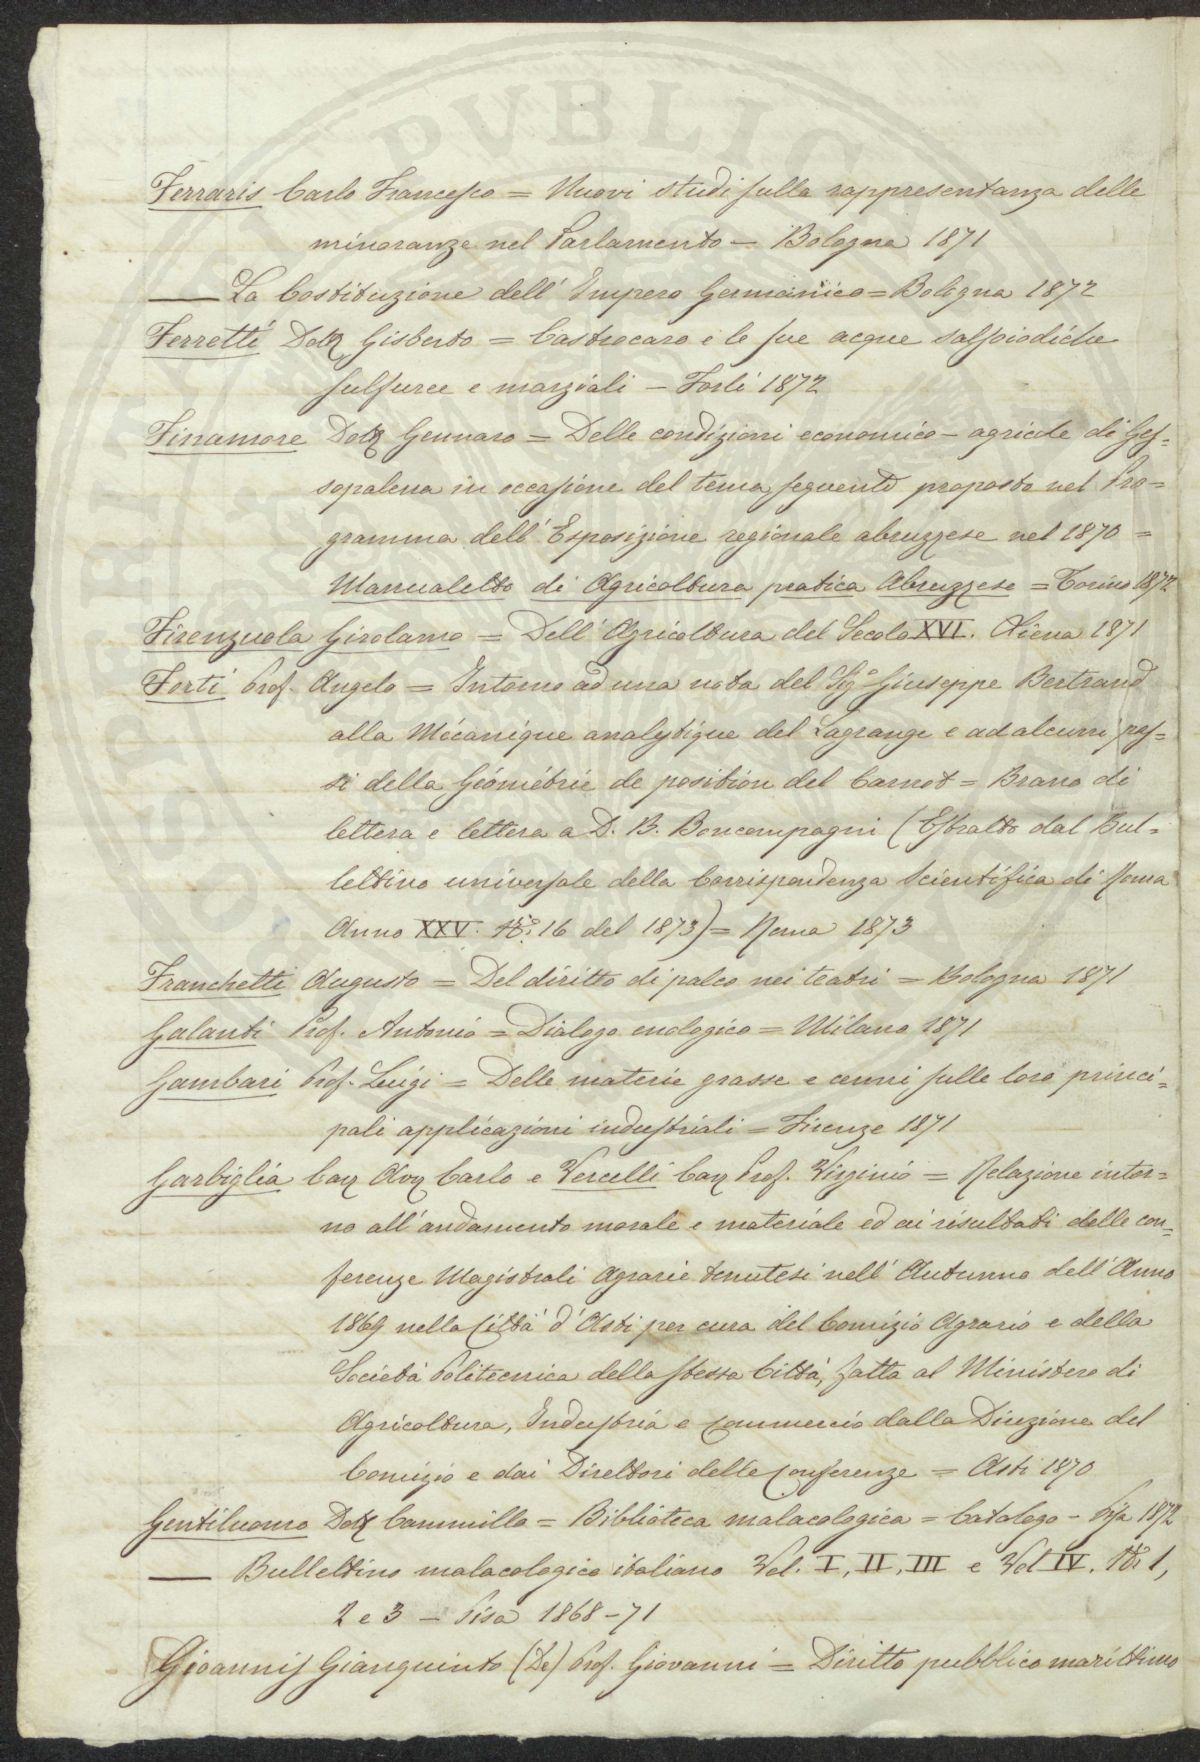 Ferraris Carlo Francesco = Nuovi studi sulla rappresentanza delle
minoranze nel Parlamento - Bologna 1871
—— La Costituzione dell' Impero Germanico = Bologna 1872
Ferretti Dott Gisberto = Castrocaro e le sue acque salsoiodiche
sulfuree e marziali - Forlì 1872
Finamore Dott Gennaro = Delle condizioni economico-agricole di Ges=
sopalena in occasione del tema seguente proposto nel Pro=
gramma dell' Esposizione regionale abruzzese nel 1870 =
Manualetto di Agricoltura pratica Abruzzese = Torino 1872
Firenzuola Girolamo = Dell' Agricoltura del Secolo XVI. Siena 1871
Forti Prof. Angelo = Intorno ad una nota del Sigr Giuseppe Bertrand
alla Mécanique analytique del Lagrange e ad alcuni pas=
si della Géométrie de position del Carnot = Brano di
lettera e lettera a D. B. Boncompagni (Estratto dal Bul=
lettino universale della Corrispondenza Scientifica di Roma
Anno XXV. No. 16 del 1873) = Roma 1873
Franchetti Augusto = Del diritto di palco nei teatri = Bologna 1871
Galanti Prof. Antonio = Dialogo enologico = Milano 1871
Gambari Prof. Luigi = Delle materie grasse e cenni sulle loro princi=
pali applicazioni industriali = Firenze 1871
Garbiglia Cav Avv Carlo e Vercelli Cav Prof. Virginio = Relazione intor=
no all' andamento morale e materiale ed ai risultati delle con=
ferenze Magistrali Agrarie tenutesi nell' Autunno dell' Anno
1869 nella Città d' Asti per cura del Comizio Agrario e della
Società Politecnica della stessa Città, fatta al Ministero di
Agricoltura, Industria e Commercio dalla Direzione del
Comizio e dai Direttori delle Conferenze = Asti 1870
Gentiluomo Dott Cammillo = Biblioteca malacologica = Catalogo - Pisa 1872
—— Bullettino malacologico italiano Vol. I, II, III e Vol IV. No. 1,
2 e 3 - Pisa 1868-71
Gioannis Gianquinto (De) Prof. Giovanni = Diritto pubblico marittimo